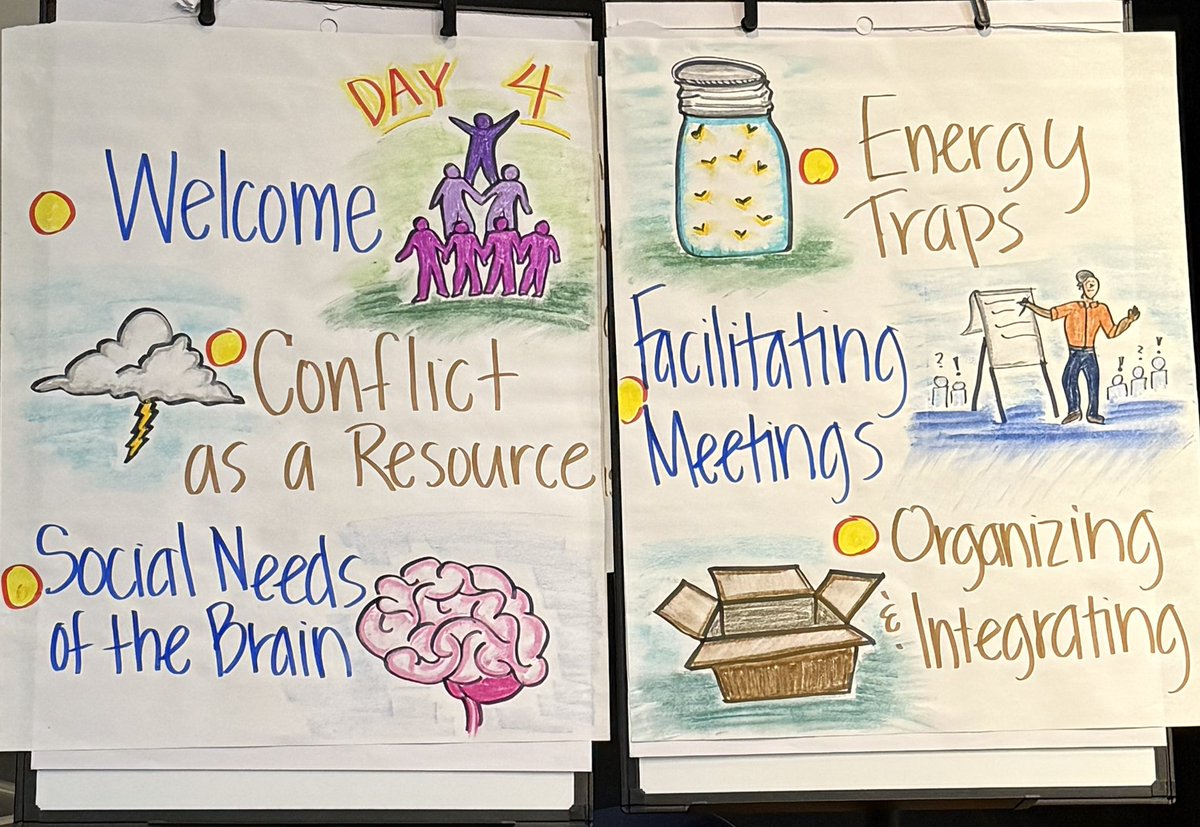 DAY 4
Welcome
Conflict
as a Resource
Social Needs
of the Brain
Energy
Traps
Facilitating
Meetings
? !
! ? !
Organizing
&
Integrating